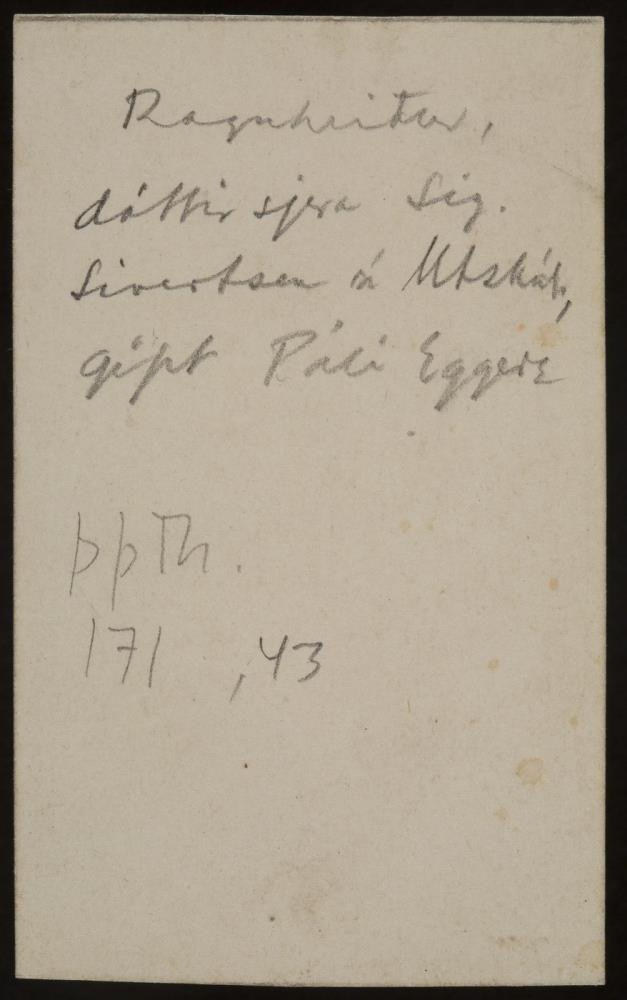 Ragnheiður,
dóttir sjera Sig.
Sivertsen á Utskál,
gipt Páli Eggerz
þþTh.
171 ,43